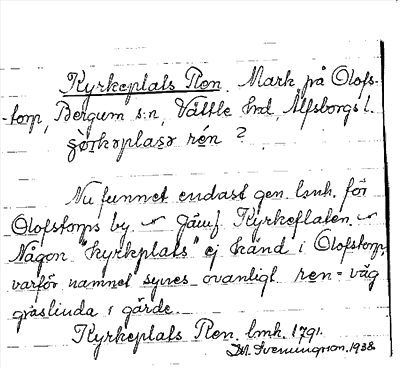 Kyrkeplats Ren. Mark på Olofs-
torp, Bergum s:n, Vättle hrd, Älfsborgs l.
rén ?
Nu funnet endast gen. lmk. för
Olofstorps by. — Jämf. Kyrkeflaten. —
Någon "kyrkplats" ej känd i Olofstorp,
varför namnet synes ovanligt. ren = väg
gräslinda i gärde.
Kyrkeplats Ren. lmk. 1791.
Svenningson. 1938